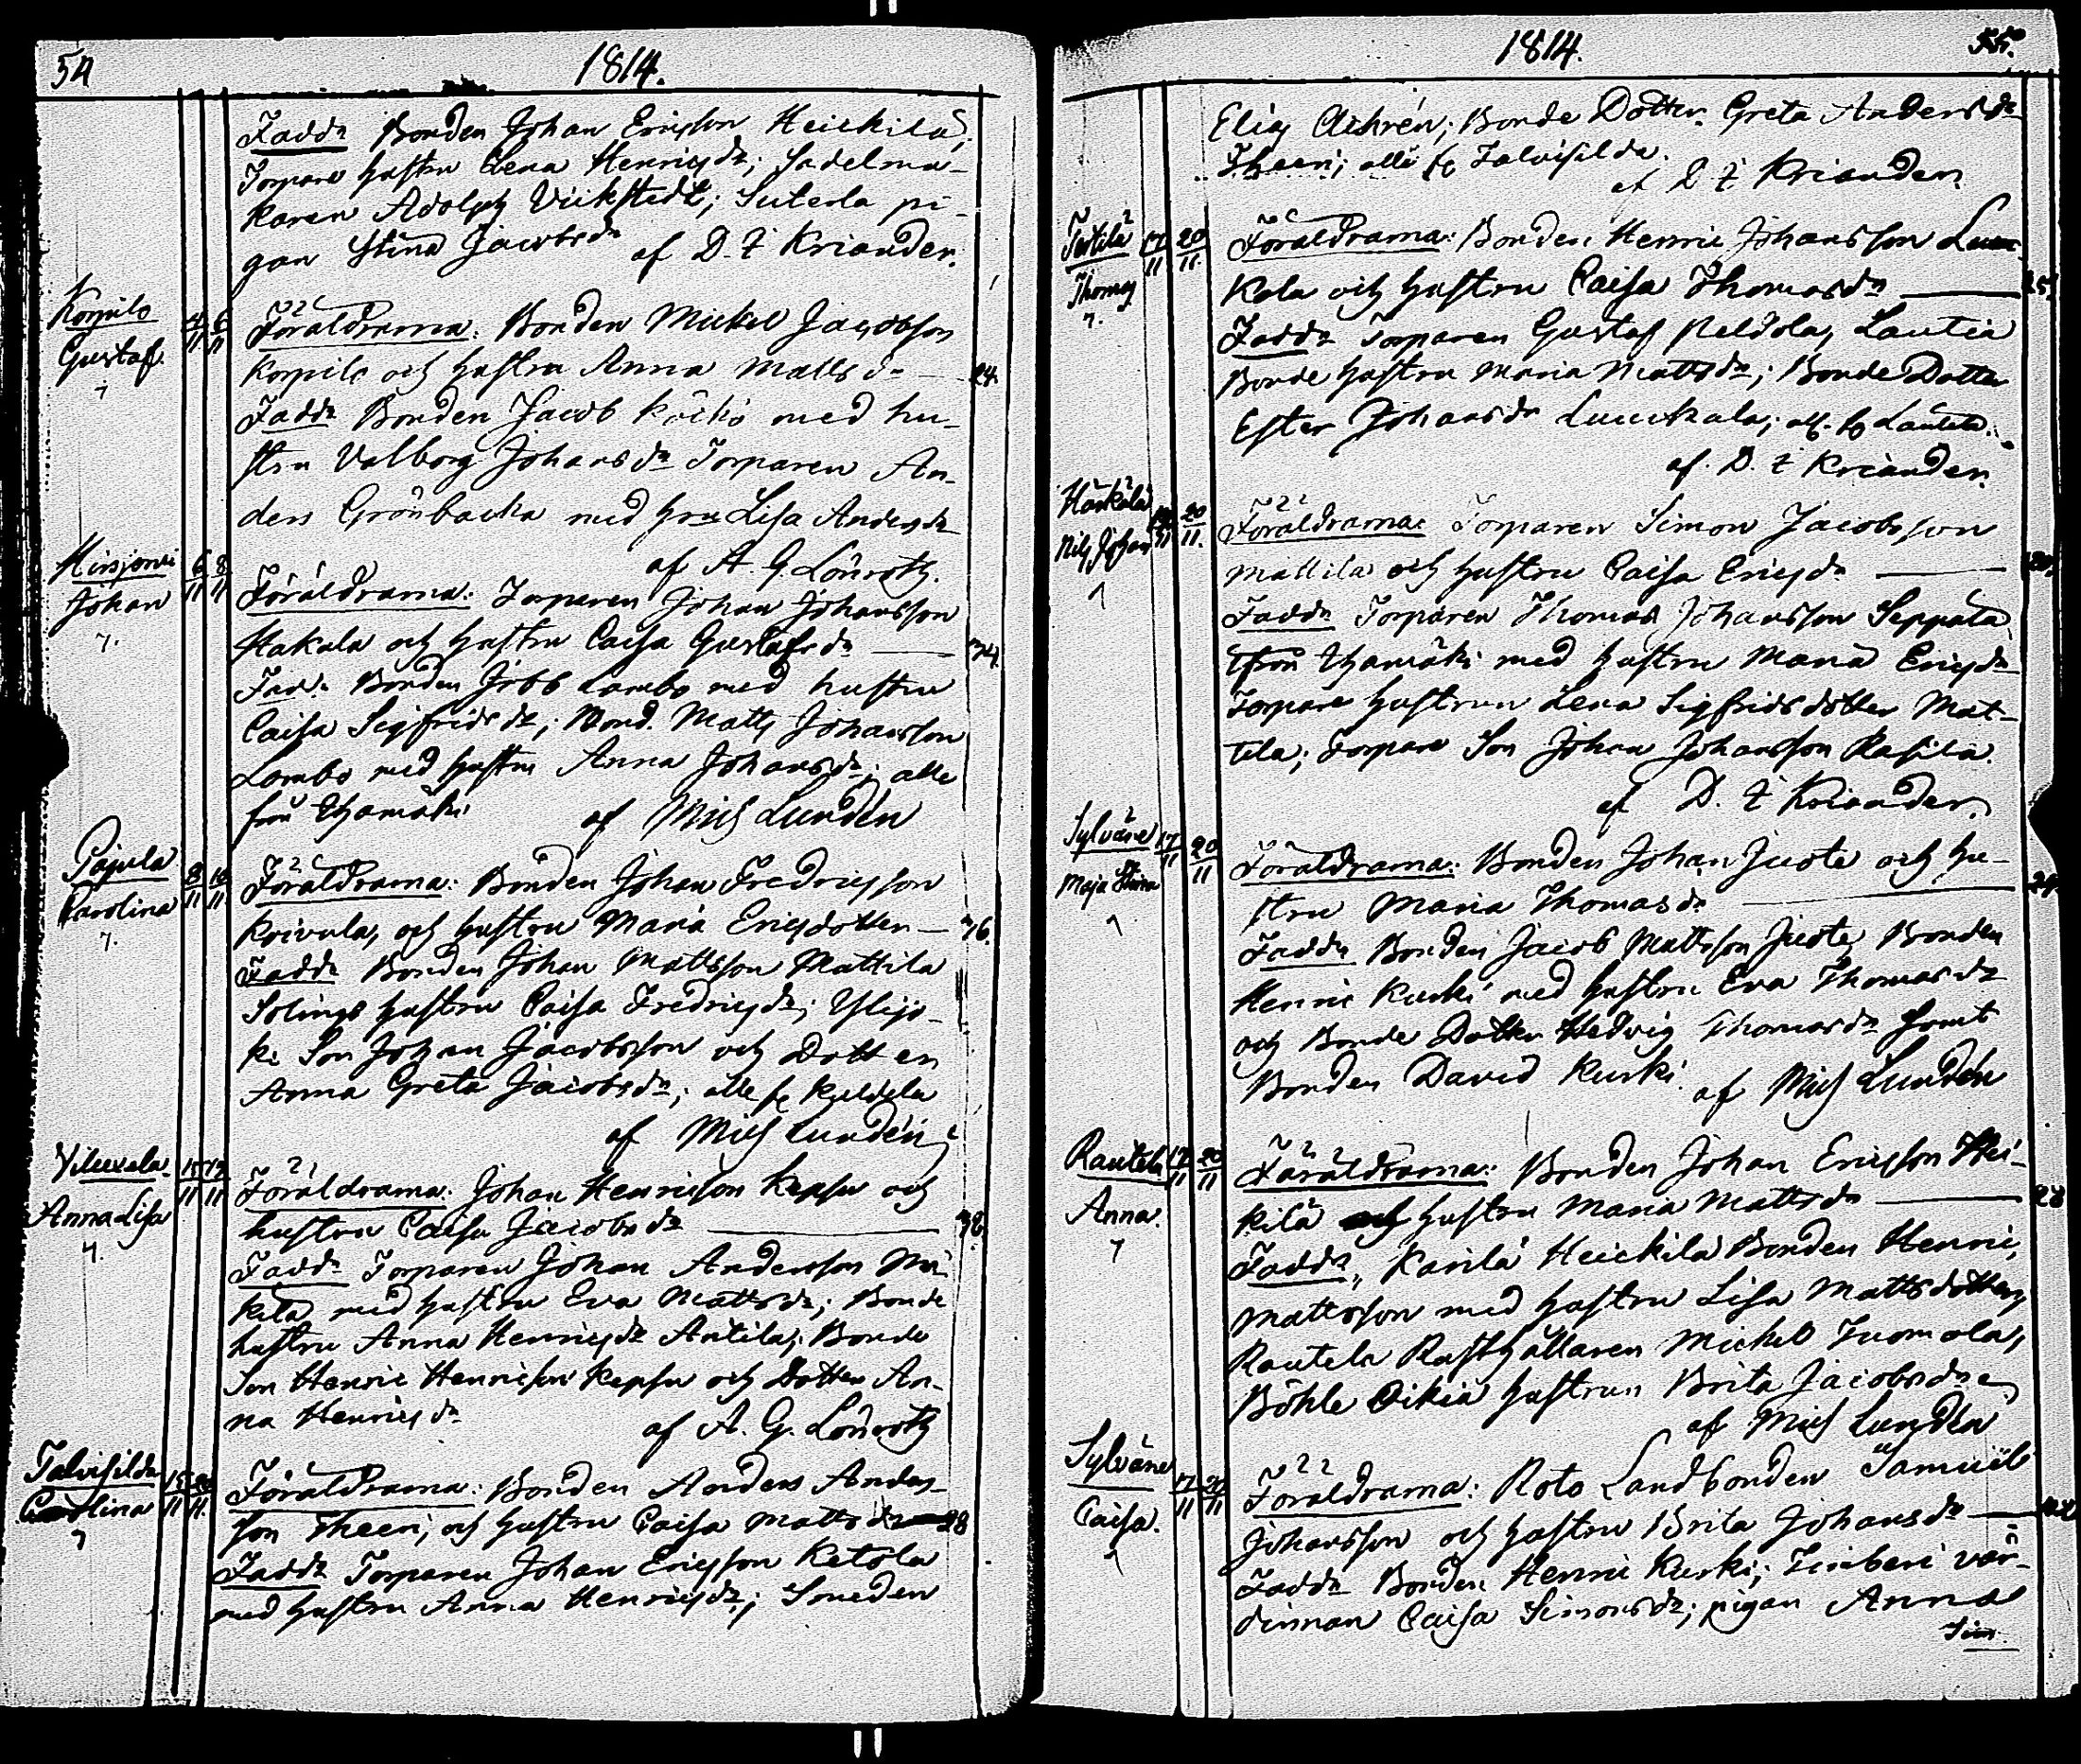 54
1814.
Fadd:r Bonden Johan Ericsson Heickilä;
Torpare hustru Lena Henricsd:r; Sadelma-
karen Adolph Vickstedt; Suterla pi-
gan Stina Jacobsd:r af D. F. Kriander.
Korpilo
Gustaf
7
4/11 6/11
Föräldrarna: Bonden Mickel Jacobsson
Korpilo och hustru Anna Mattsd:r — 24.
Fadd:r Bonden Jacob Köckö med hu-
stru Valborg Johansd:r Torparen An-
ders Grönbacka med hru Lisa Andersd:r
af A. G. Lönroth.
Hirsjervi
Johan
7.
6/11 8/11
Föräldrarna: Torparen Johan Johansson
Hakala och hustru Caisa Gustafsd:r — 34.
Fad:r Bonden Jobb Lambo med hustru
Caisa Sigfridsd:r; Bond. Matts Johansson
Lambo med hustru Anna Johansd:r; alle
från Hamäki af Mich Lundén
Pajula
Carolina
7.
8/11 10/11
Föräldrarna: Bonden Johan Fredricsson
Koivula, och hustru Maria Ericsdotter — 36.
Fadd:r Bonden Johan Mattsson Mattila
Solings hustru Caisa Fredricsd:r; Ylijo-
ki Son Johan Jacobsson och Dotteren
Anna Greta Jacobsd:r; alle fr Kuldela
af Mich Lundén
Viluxela
Anna Lisa
7.
Föräldrarna: Johan Henricsson Kepsu och
hustru Caisa Jacobsd:r — 38.
Fadd:r Torparen Johan Andersson Mä-
kilä med hustru Eva Mattsd:r; Bonde
hustru Anna Henricsd:r Antila; Bonde
Son Henric Henricson Kepsu och Dotter An-
na Henricsd:r af A. G. Lönroth
Talvisilda
Carolina
7
Föräldrarna: Bonden Anders Anders-
son Theeri, och hustru Caisa Mattsd:r — 28
Fadd:r Torparen Johan Ericsson Ketola
med hustru Anna Henricsd:r; Smeden
1814.
55.
Elias Achrén; Bonde Dotter Greta Andersd:r
Theeri; alle fr Talvisilda.
af D. F. Kriander.
Thomas
7.
17/11 20/11
Föräldrarna: Bonden Henric Johansson Luu-
kala och hustru Caisa Thomasd:r — 25.
Fadd:r Torparen Gustaf Peldola, Lautia
Bonde hustru Maria Mattsd:r; Bonde Dotter
Ester Johansd:r Luuckala;
af. D. F. Kriander.
Härkälä
Nils Johan
7
20/11.
Föräldrarna: Torparen Simon Jacobsson
Mattila och hustru Caisa Ericsd:r —
Fadd:r Torparen Thomas Johansson Seppälä
ifrån Hamäki med hustru Maria Ericsd:r
Torpare hustrun Lena Sigfridsdotter Mat-
tila; Torpare Son Johan Johansson Rasila.
af D. F. Kriander.
Sylväne
Maja Stina
7
17/11 20/11
Föräldrarna: Bonden Johan Juote och hu-
stru Maria Thomasd:r —
Fadd:r Bonden Jacob Mattsson Juote, Bonden
Henric Kurki med hustru Eva Thomasd:r
och Bonde Dotter Hedvig Thomasd:r samt
Bonden David Kurki af Mich Lundén
Rautela
Anna.
7
17/11 20/11
Föräldrarna: Bonden Johan Ericsson Hei-
kilä och hustru Maria Mattsd:r — 28
Fadd:r, Karilä Heickilä Bonden Henric
Mattsson med hustru Lisa Mattsdotter,
Rautela Rusthållaren Mickel Tuomola,
Böhle Oikia hustrun Brita Jacobsd:r
af Mich Lundén
Sylväne
Caisa.
7
17/11 20/11
Föräldrarna: Roto Landbonden Samuel
Johansson och hustru Brita Johansd:r —
Fadd:r Bonden Henric Kurki; Timberi vär-
dinnan Caisa Simonsd:r; pigan Anna
Sim